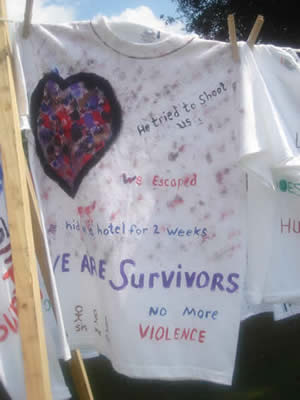 He tried to Shoot
us!
We Escaped
hid hotel for 2 weeks
WE ARE SURVIVORS
NO More
VIOLENCE